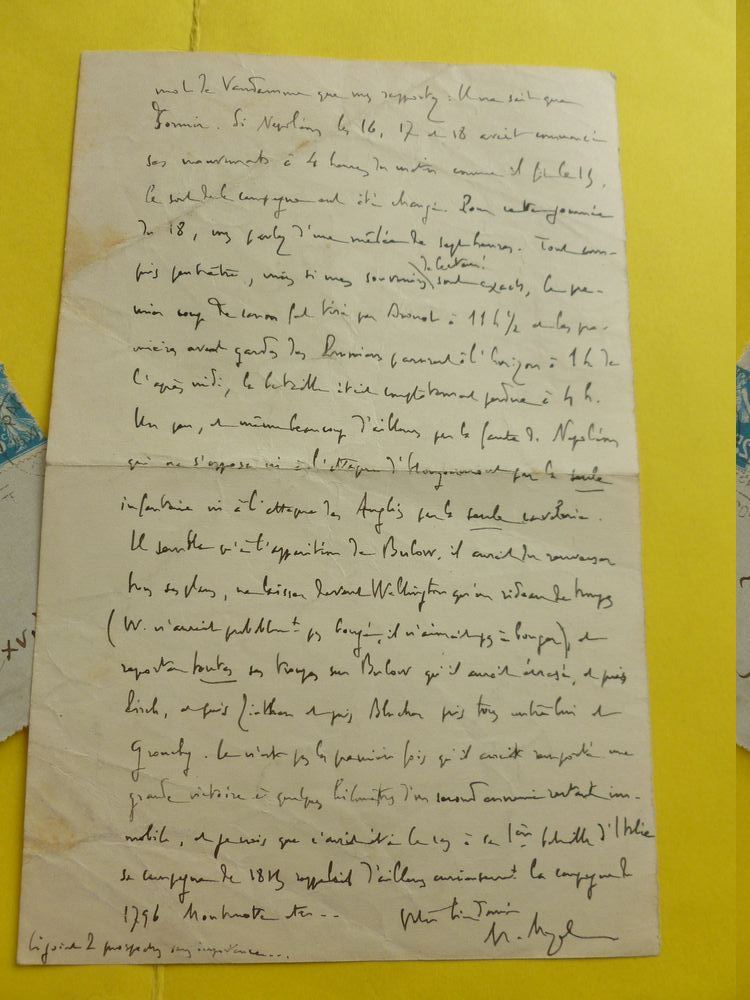 mot de Vandamme que vous rapportez : Il ne sait que
Dormir. Si Napoléon les 16, 17 et 18 avait commencé
ses mouvements à 4 heures du matin comme il fit le 15,
le sort de la campagne eut été changé. Pour cette journée
du 18, vous parlez d'une mêlée de sept heures. Tout com-
pris peut-être, mais si mes souvenirs
de lecture
sont exacts, le pre-
mier coup de canon fut tiré par Drouot à 11 h ½ et les pre-
mières avant gardes des Prussiens parurent à l'horizon à 1 h de
l'après midi, la bataille était complètement perdue à 4 h.
Un peu, et même beaucoup d'ailleurs par la faute de Napoléon
qui ne s'opposa ni à l'attaque d'Hougoumont par la seule
infanterie ni à l'attaque des Anglais par la seule cavalerie.
Il semble qu'à l'apparition de Bulow, il aurait du renverser
tous ses plans, ne laisser devant Wellington qu'un rideau de troupes
(W. n'aurait probablem^t pas bougé, il n'aimait pas à bouger), et
reporter toutes ses troupes sur Bulow qu'il aurait écrasé, et puis
Pirch, et puis Ziethen et puis Blucher pris tous entre lui et
Grouchy. Ce n'est pas la première fois qu'il aurait remporté une
grande victoire à quelques kilomètres d'un second ennemi restant im-
mobile, et je crois que c'avait été le cas à sa 1ère bataille d'Italie
sa campagne de 1815 rappelait d'ailleurs curieusement la campagne de
1796 Montenotte etc...
Ci joint 2 prospectus sans importance...